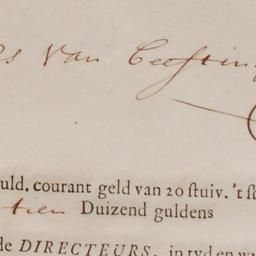 s Van Ceesting
uld. courant geld van 20 ſtuiv. 't ſt
tien Duizend guldens
de DIRECTEURS, in tyd en w